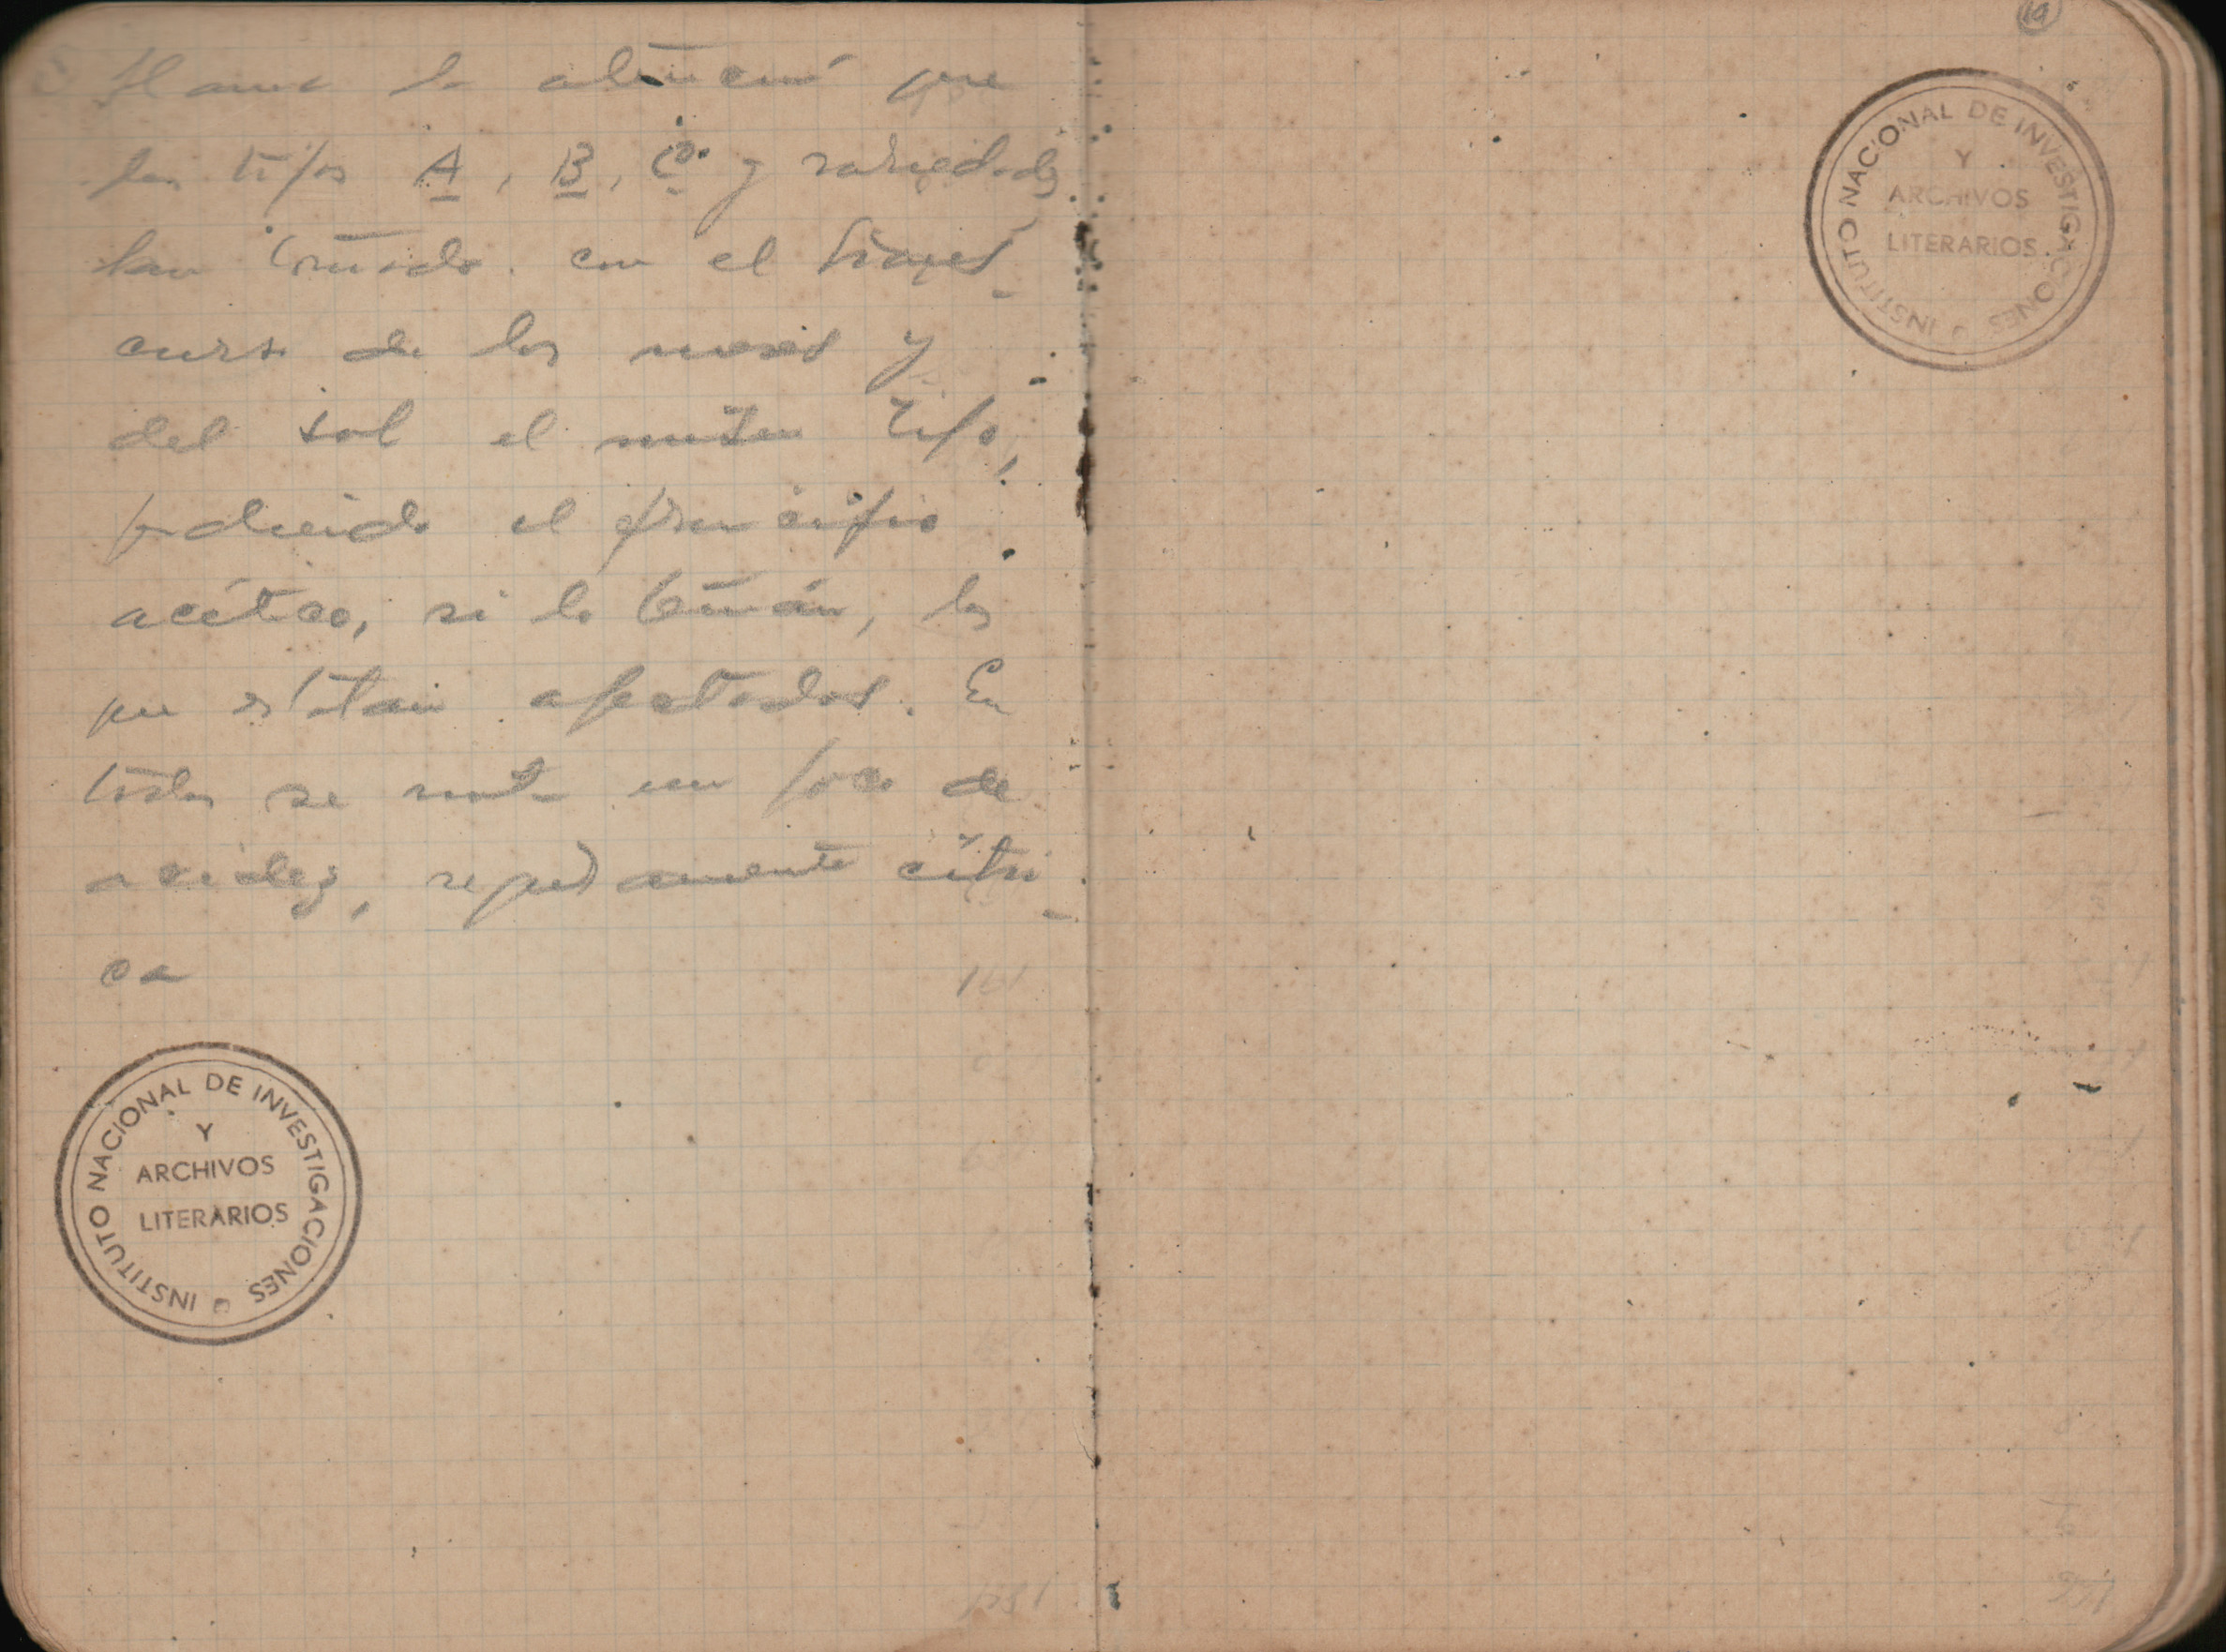 Llama la atención que
los tipos A, B, C y variedades
han tomado con el trans-
curso de los meses y
del sol el mismo tipo,
perdiendo el principio
acético, si lo tenían, los
que estaban afectados. En
todos se nota un poco de
acidez, seguramente cítri-
ca
INSTITUTO NACIONAL DE INVESTIGACIONES
Y
ARCHIVOS
LITERARIOS
INSTITUTO NACIONAL DE INVESTIGACIONES
Y
ARCHIVOS
LITERARIOS